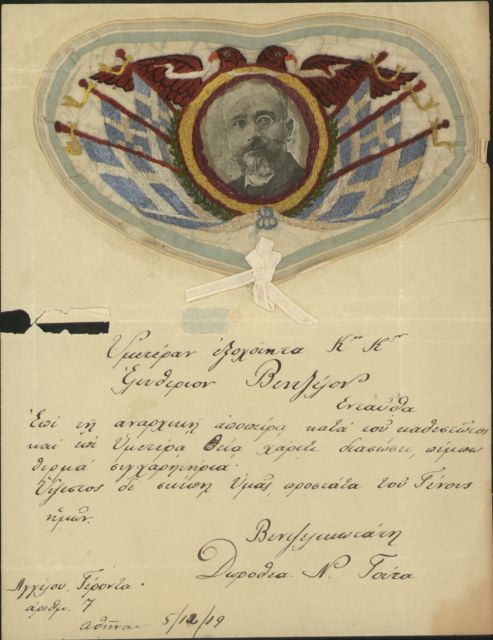 Ὑμετέραν ἐξοχότητα Κον Κον
Ἐλευθέριον Βενιζέλον
Ἐνταῦθα
Ἐπὶ τῇ ἀναρχικῇ ἀποπείρᾳ κατὰ τοῦ καθεστῶτος
καὶ ἐπὶ Ὑμετέρᾳ θείᾳ χάριτι διασώσει, πέμπω
θερμὰ συγχαρητήρια.
Ὕψιστος δὲ σκέποι Ὑμᾶς, προστάτα τοῦ Γένους
ἡμῶν.
Βενιζελικωτάτη
Δωροθέα Ν.
Ἀγγέλου Γέροντα.
ἀριθμ. 7
Ἀθῆναι 5/12/19